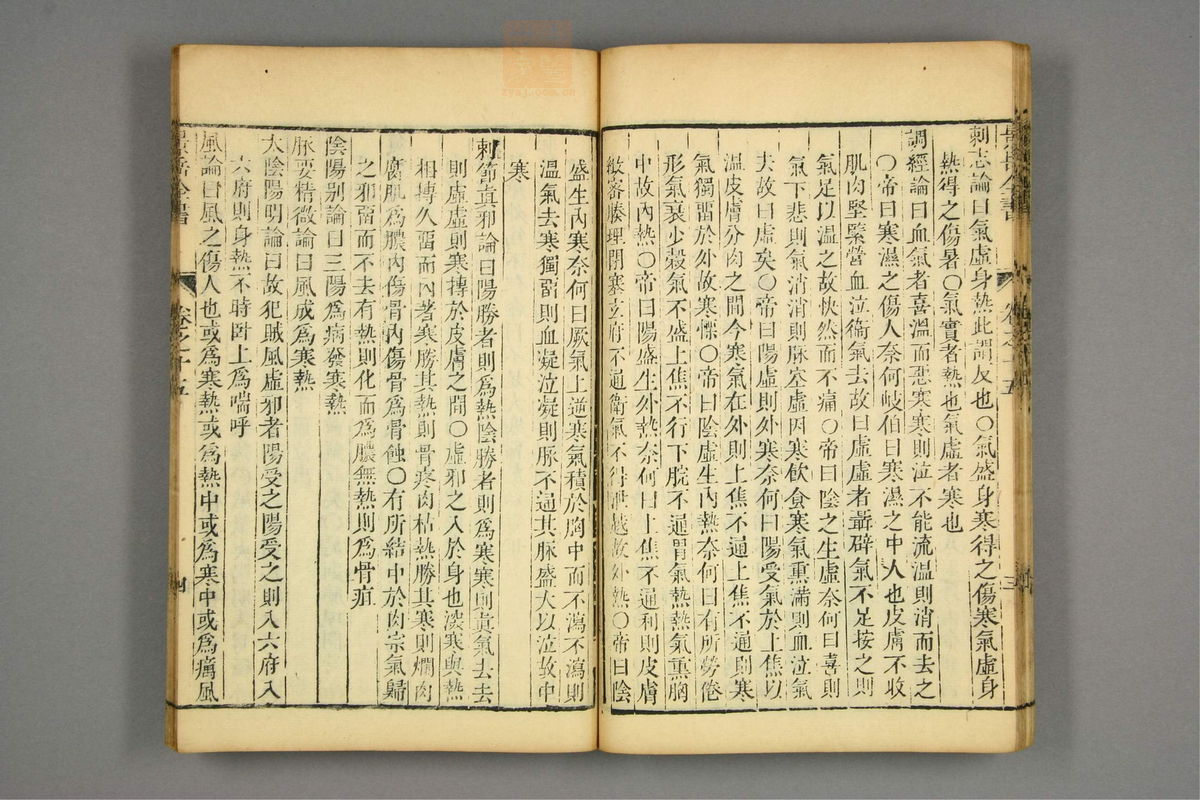 刺志論曰氣虛身熱此謂反也○氣盛身寒得之傷寒氣虛身
熱得之傷暑○氣實者熱也氣虛者寒也
調經論曰血氣者喜溫而惡寒寒則泣不能流溫則消而去之
○帝曰寒濕之傷人奈何岐伯曰寒濕之中人也皮膚不收
肌肉堅緊營血泣衛氣去故曰虛虛者聶辟氣不足按之則
氣足以溫之故快然而不痛○帝曰陰之生虛奈何曰喜則
氣下悲則氣消消則脉空虛因寒飲食寒氣熏滿則血泣氣
去故曰虛矣○帝曰陽虛則外寒奈何曰陽受氣於上焦以
溫皮膚分肉之間今寒氣在外則上焦不通上焦不通則寒
氣獨留於外故寒慄○帝曰陰虛生內熱奈何曰有所勞倦
形氣衰少穀氣不盛上焦不行下脘不通胃氣熱熱氣熏胸
中故內熱○帝曰陽盛生外熱奈何曰上焦不通利則皮膚
緻密腠理閉塞玄府不通衛氣不得泄越故外熱○帝曰陰
盛生內寒奈何曰厥氣上逆寒氣積於胸中而不瀉不瀉則
溫氣去寒獨留則血凝泣凝則脉不通其脉盛大以泣故中
寒
刺節真邪論曰陽勝者則為熱陰勝者則為寒寒則真氣去去
則虛虛則寒搏於皮膚之間○虛邪之入於身也深寒與熱
相搏久留而內著寒勝其熱則骨疼肉枯熱勝其寒則爛肉
腐肌為膿內傷骨內傷骨為骨蝕○有所結中於肉宗氣歸
之邪留而不去有熱則化而為膿無熱則為骨疽
陰陽別論曰三陽為病發寒熱
脉要精微論曰風成為寒熱
太陰陽明論曰故犯賊風虛邪者陽受之陽受之則入六府入
六府則身熱不時臥上為喘呼
風論曰風之傷人也或為寒熱或為熱中或為寒中或為癘風
景岳全書
卷之十五
三
景岳全書
卷之十五
四